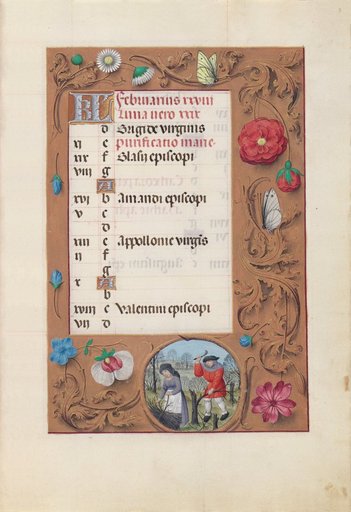 KL Februarius xxviii
Luna vero xxx
d Brigide virginis
xi e Purificatio marie
xix f Blasii episcopi
viii g
A
xvi b Amandi episcopi
v c
d
xiii e Appollonie virgis
ii f
g
x A
b
xviii c Valentini episcopi
vii d